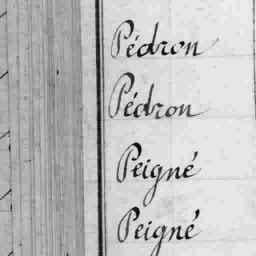 Pédron
Pédron
Peigné
Peigné